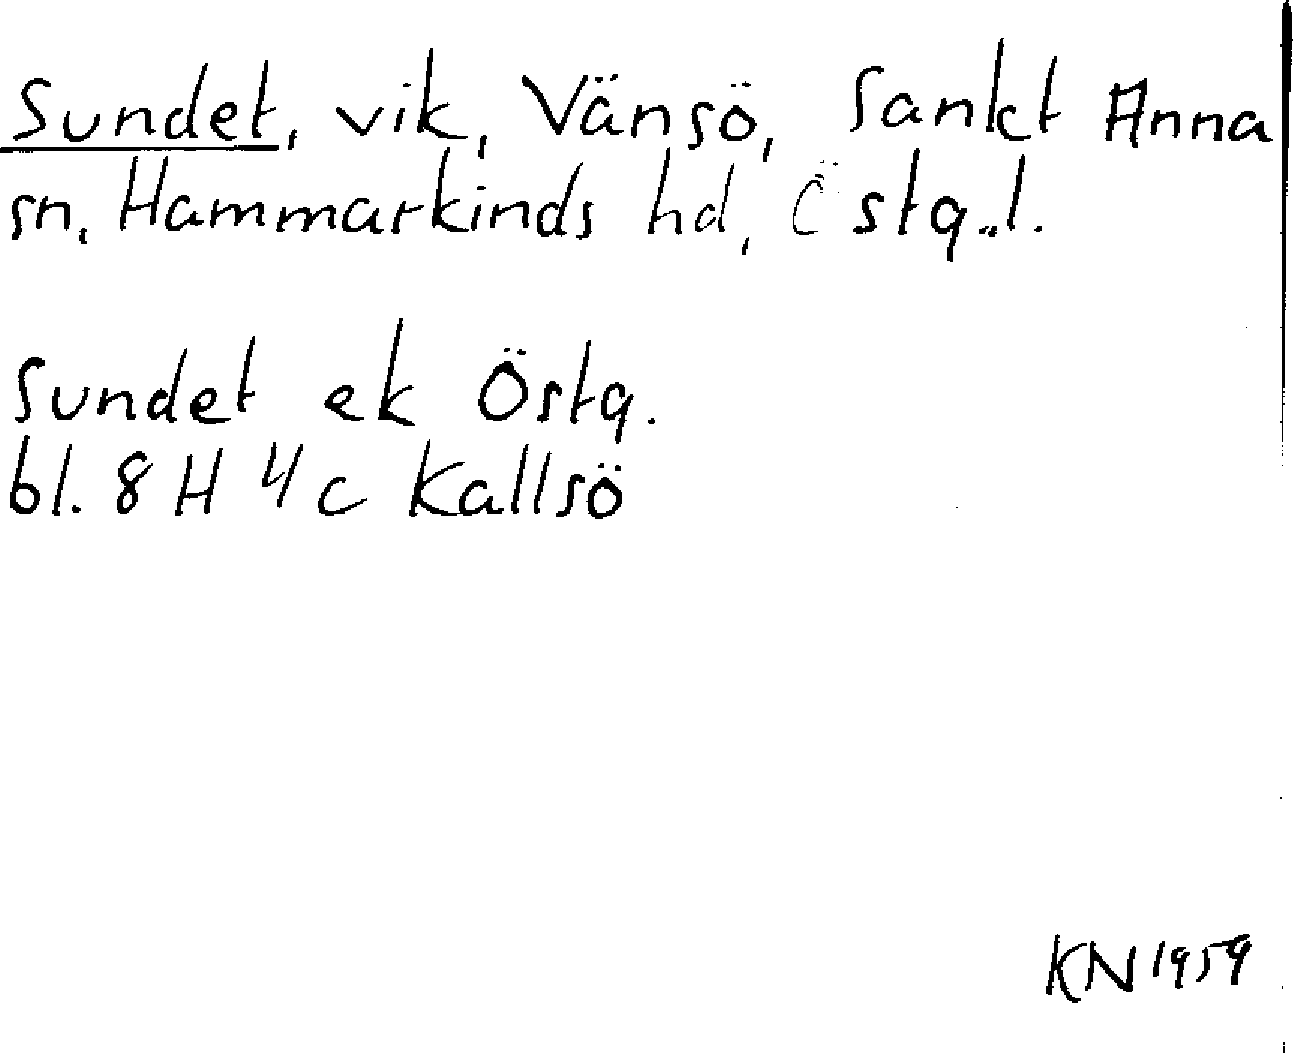 Sundet, vik, Vänsö, Sankt Anna
sn, Hammarkinds hd, Östg.l.
Sundet ek Östg.
bl. 8 H 4 c Kallsö
KN 1959